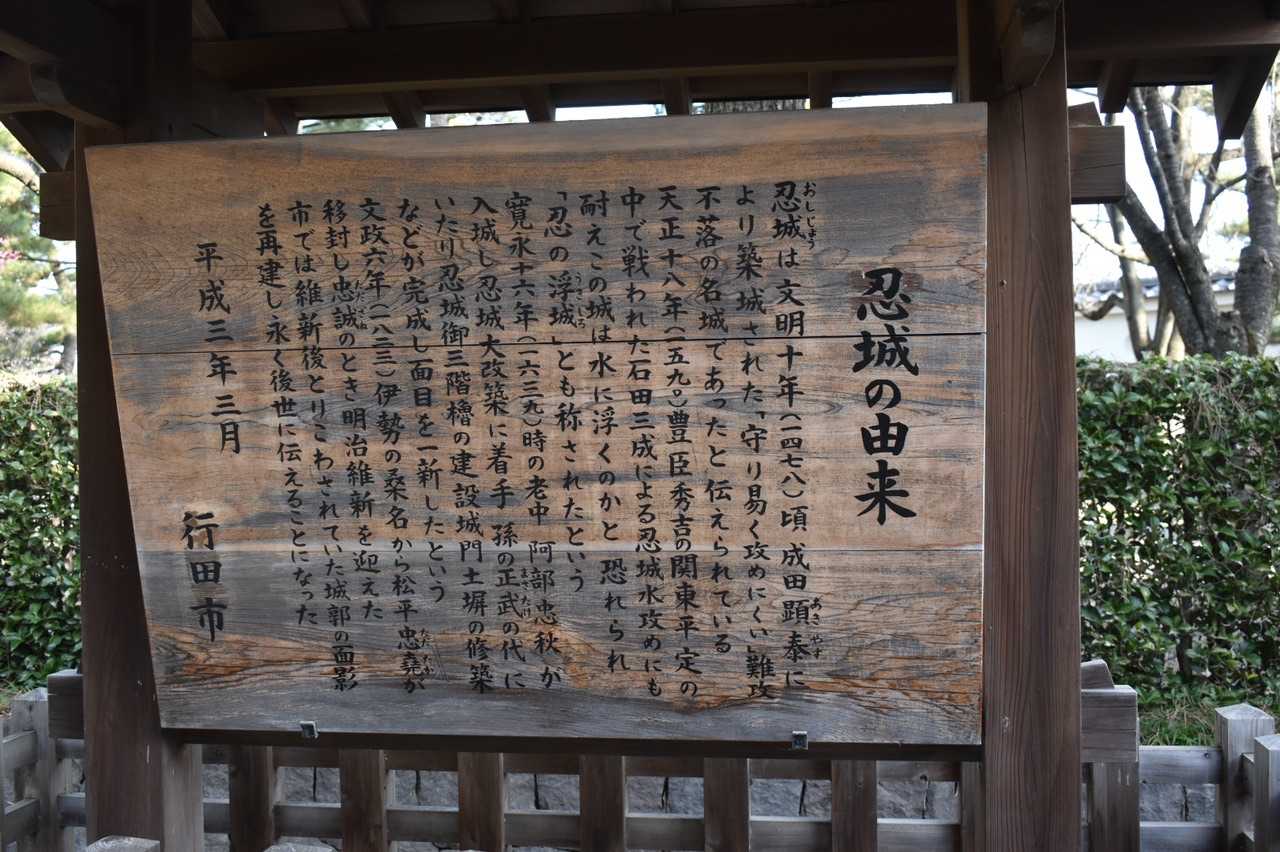 忍城の由来
忍城は文明十年（一四七八）頃 成田顕泰に
おしじょう
あきやす
より築城された「守り易く攻めにくい」難攻
不落の名城であったと伝えられている
天正十八年（一五九〇）豊臣秀吉の関東平定の
中で戦われた石田三成による忍城水攻めにも
耐えこの城は水に浮くのかと 恐れられ
「忍の浮城」とも称されたという
うきしろ
寛永十六年（一六三九）時の老中 阿部忠秋が
入城し忍城大改築に着手 孫の正武の代に
まさたけ
いたり忍城御三階櫓の建設城門土塀の修築
などが完成し面目を一新したという
文政六年（一八二三）伊勢の桑名から松平忠堯が
ただたか
移封し忠誠のとき明治維新を迎えた
ただざね
市では維新後とりこわされていた城郭の面影
を再建し永く後世に伝えることになった
平成三年三月
行田市